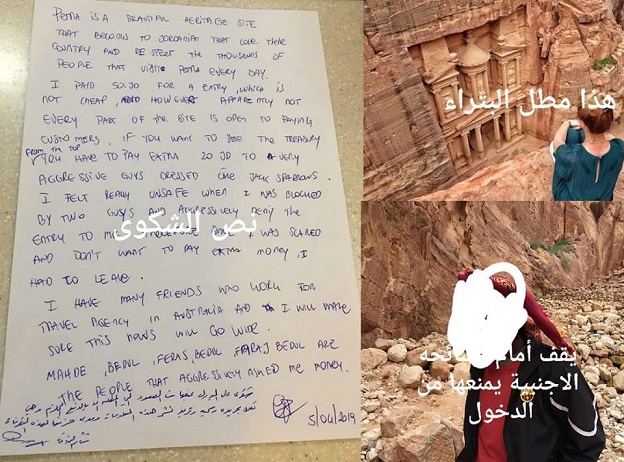 PETRA IS A BEAUTIFUL HERITAGE SITE
THAT BELONGS TO JORDANIAN THAT LOVE THEIR
COUNTRY AND RESPECT THE THOUSANDS OF
PEOPLE THAT VISIT PETRA EVERY DAY.
I PAID 50 JD FOR A ENTRY, WHICH IS
NOT CHEAP AND HOWEVER APPARENTLY NOT
EVERY PART OF THE SITE IS OPEN TO PAYING
CUSTOMERS. IF YOU WANT TO SEE THE TREASURY
FROM THE TOP
YOU HAVE TO PAY EXTRA 20 JD TO A VERY
AGGRESSIVE GUYS DRESSED LIKE JACK SPARROWS.
I FELT REALLY UNSAFE WHEN I WAS BLOCKED
BY TWO GUYS AND AGGRESSIVELY DENY THE
ENTRY TO ME I WAS SCARED
AND DON'T WANT TO PAY EXTRA MONEY. I
HAD TO LEAVE.
I HAVE MANY FRIENDS WHO WORK FOR
TRAVEL AGENCY IN AUSTRALIA AND I WILL MAKE
SURE THIS NEWS WILL GO WIDE.
MAHDE, BEDUL, FERAS, BEDUL, FARAJ BEDUL ARE
THE PEOPLE THAT AGGRESSIVELY ASKED ME MONEY.
5/04/2019
نص الشكوى
هذا مطل البتراء
يقف أمام السائحه
الاجنبية يمنعها من
الدخول